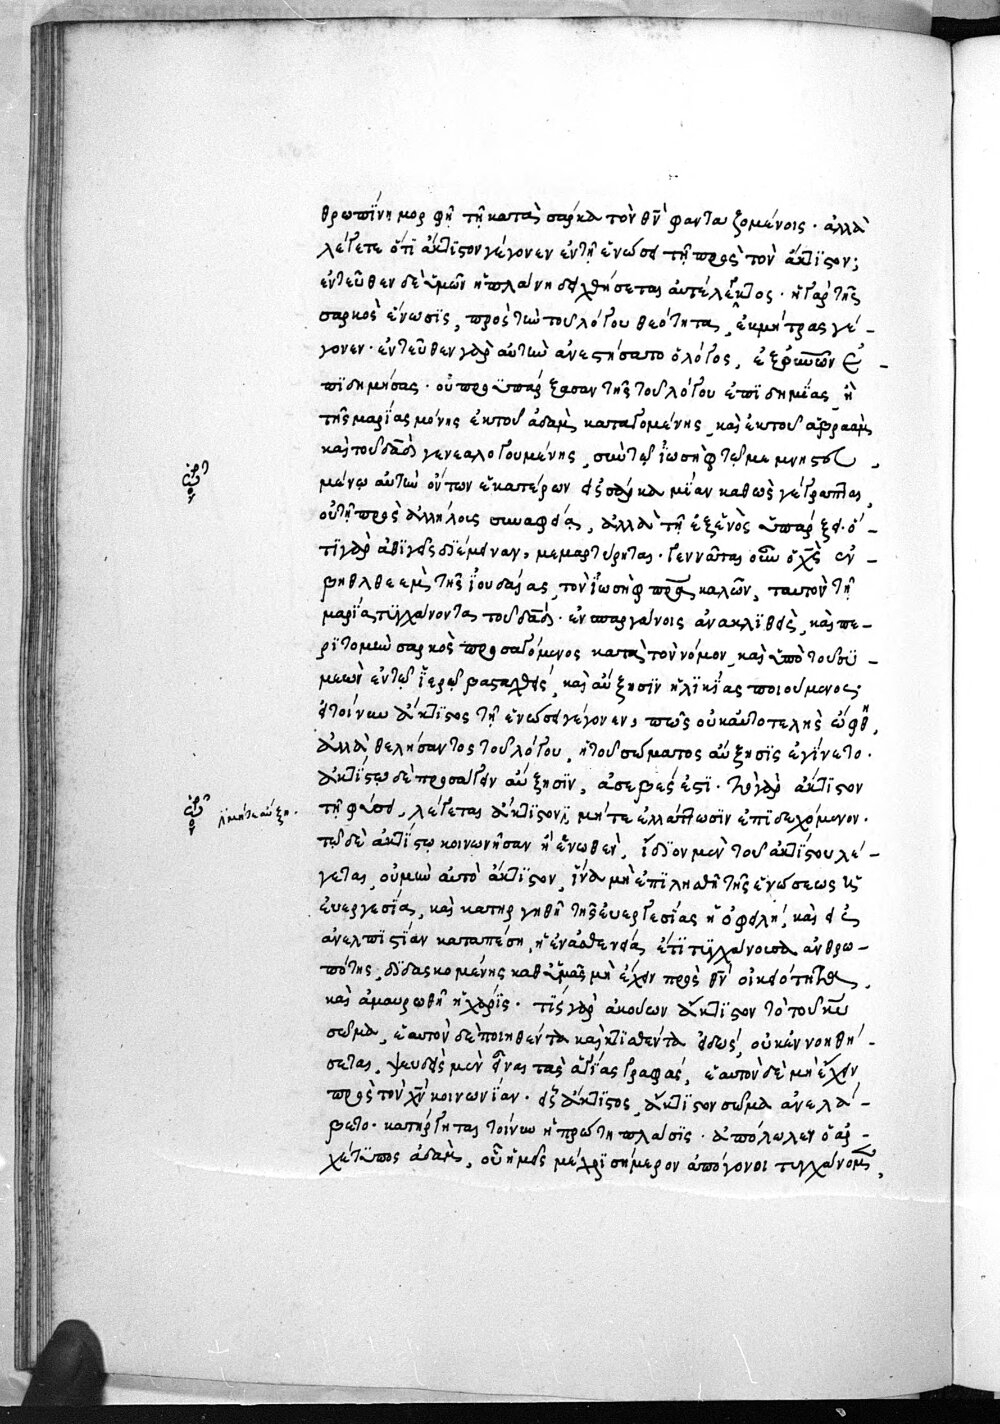 θρωπΐνη μορφῇ τῇ κατὰ σάρκα τὸν θν̅ φανταζομένοις · ἀλλὰ
λέγετε ὅτι ἄκτϊστον γέγονεν ἐν τῇ ἑνώσει τῇ πρὸς τὸν ἄκτϊστον ;
ἐντεῦθεν δὲ ὑμῶν ἡ πλάνη δειχθήσεται αὐτέλεγκτος · ἡ γὰρ τῆς
σαρκὸς ἕνωσϊς, πρὸς τὴν τοῦ λόγου θεότητα, ἐκ μήτρας γέ-
γονεν · ἐντεῦθεν γὰρ αὐτὴν ἀνεστήσατο ὁ λόγος, ἐξ
πϊδημήσας · οὐ προϋπάρξασαν τῆς τοῦ λόγου ἐπϊδημΐας, ἢ
τῆς μαρίας μόνης ἐκ τοῦ ἀδὰμ καταγομένης, καὶ ἐκ τοῦ ἀβραὰμ
καὶ τοῦ δαδ̅ γενεαλογουμένης, σὺν τῷ ϊωσὴφ τῷ μεμνηστευ
μένῳ αὐτὴν ὄντων ἑκατέρων εἰς σάρκα μΐαν καθὼς γέγραπται,
οὐ τῇ πρὸς ἀλλήλους συναφείᾳ, ἀλλὰ τῇ ἐξ ἑνὸς ὑπάρξει · ὅ-
τι γὰρ ἄθϊγεῖς διέμειναν, μεμαρτύρηται · γεννᾶται οὖν ὁ χς̅ ἐν
βηθλεὲμ τῆς ϊουδαίας, τὸν ϊωσὴφ πρα̅ καλῶν, ταυτὸν τῇ
μαρίᾳ τϋγχάνοντα τοῦ δαδ̅ · ἐν σπαργάνοις ἀνακλϊθεὶς, καὶ πε-
ρϊτομὴν σαρκὸς προσαγόμενος κατὰ τὸν νόμον, καὶ ὑπὸ τοῦ σϋ-
μεὼν ἐν τῷ ϊερῷ βασταχθεὶς, καὶ αὔξησϊν ἡλϊκΐας ποιούμενος
εἰ τοίνυν ἄκτϊστος τῇ ἑνώσει γέγονεν, πῶς οὐκ αὐτοτελὴς ὤφθη,
ἀλλὰ θελήσαντος τοῦ λόγου, ἡ τοῦ σώματος αὔξησϊς ἐγίνετο ·
ἀκτΐστῳ δὲ προσάγειν αὔξησϊν, ἀσεβές ἐστϊ · τὸ γὰρ ἄκτϊστον
τῇ φύσει, λέγεται ἄκτϊστον, μήτε ἐλλάττωσϊν ἐπϊδεχόμενον ·
τὸ δὲ ἀκτΐστῳ κοινωνῆσαν ἢ ἑνωθὲν, ἴδϊον μὲν τοῦ ἀκτΐστου λέ-
γεται, οὐ μὴν αὐτὸ ἄκτϊστον, ἵνα μὴ ἐπϊλησθῇ τῆς ἑνώσεως ἡ
εὐεργεσία, καὶ καταργηθῇ τῆς εὐεργεσίας ἡ ὀφειλή, καὶ εἰς
ἀνελπϊστΐαν καταπέσῃ, ἡ ἐν ἀσθενείᾳ ἔτϊ τϋγχάνουσα ἀνθρω-
πότης, δϊδασκομένης καθ' ὑμᾶς μὴ ἔχειν πρὸς θν̅ οἰκειότητα,
καὶ ἀμαυρωθῇ ἡ χάρϊς · τΐς γὰρ ἀκούων ἄκτϊστον τὸ τοῦ κυ̅
σῶμα, ἑαυτὸν δὲ ποιηθέντα καὶ κτϊσθέντα εἰδὼς, οὐκ ἐννοηθή-
σεται, ψευδεῖς μὲν εἶναι τὰς ἁγίας γραφάς, ἑαυτὸν δὲ μὴ ἔχειν
πρὸς τὸν χν̅ κοινωνίαν · εἰ ἄκτϊστος, ἄκτϊστον σῶμα ἀνελά-
βετο · κατήργηται τοίνυν ἡ πρώτη πλάσϊς · ἀπόλωλεν ὁ ἀρ-
χέτϋπος ἀδὰμ, οὗ ἡμεῖς μέχρϊ σήμερον ἀπόγονοι τυγχάνομεν,
μήτε αὔξη.